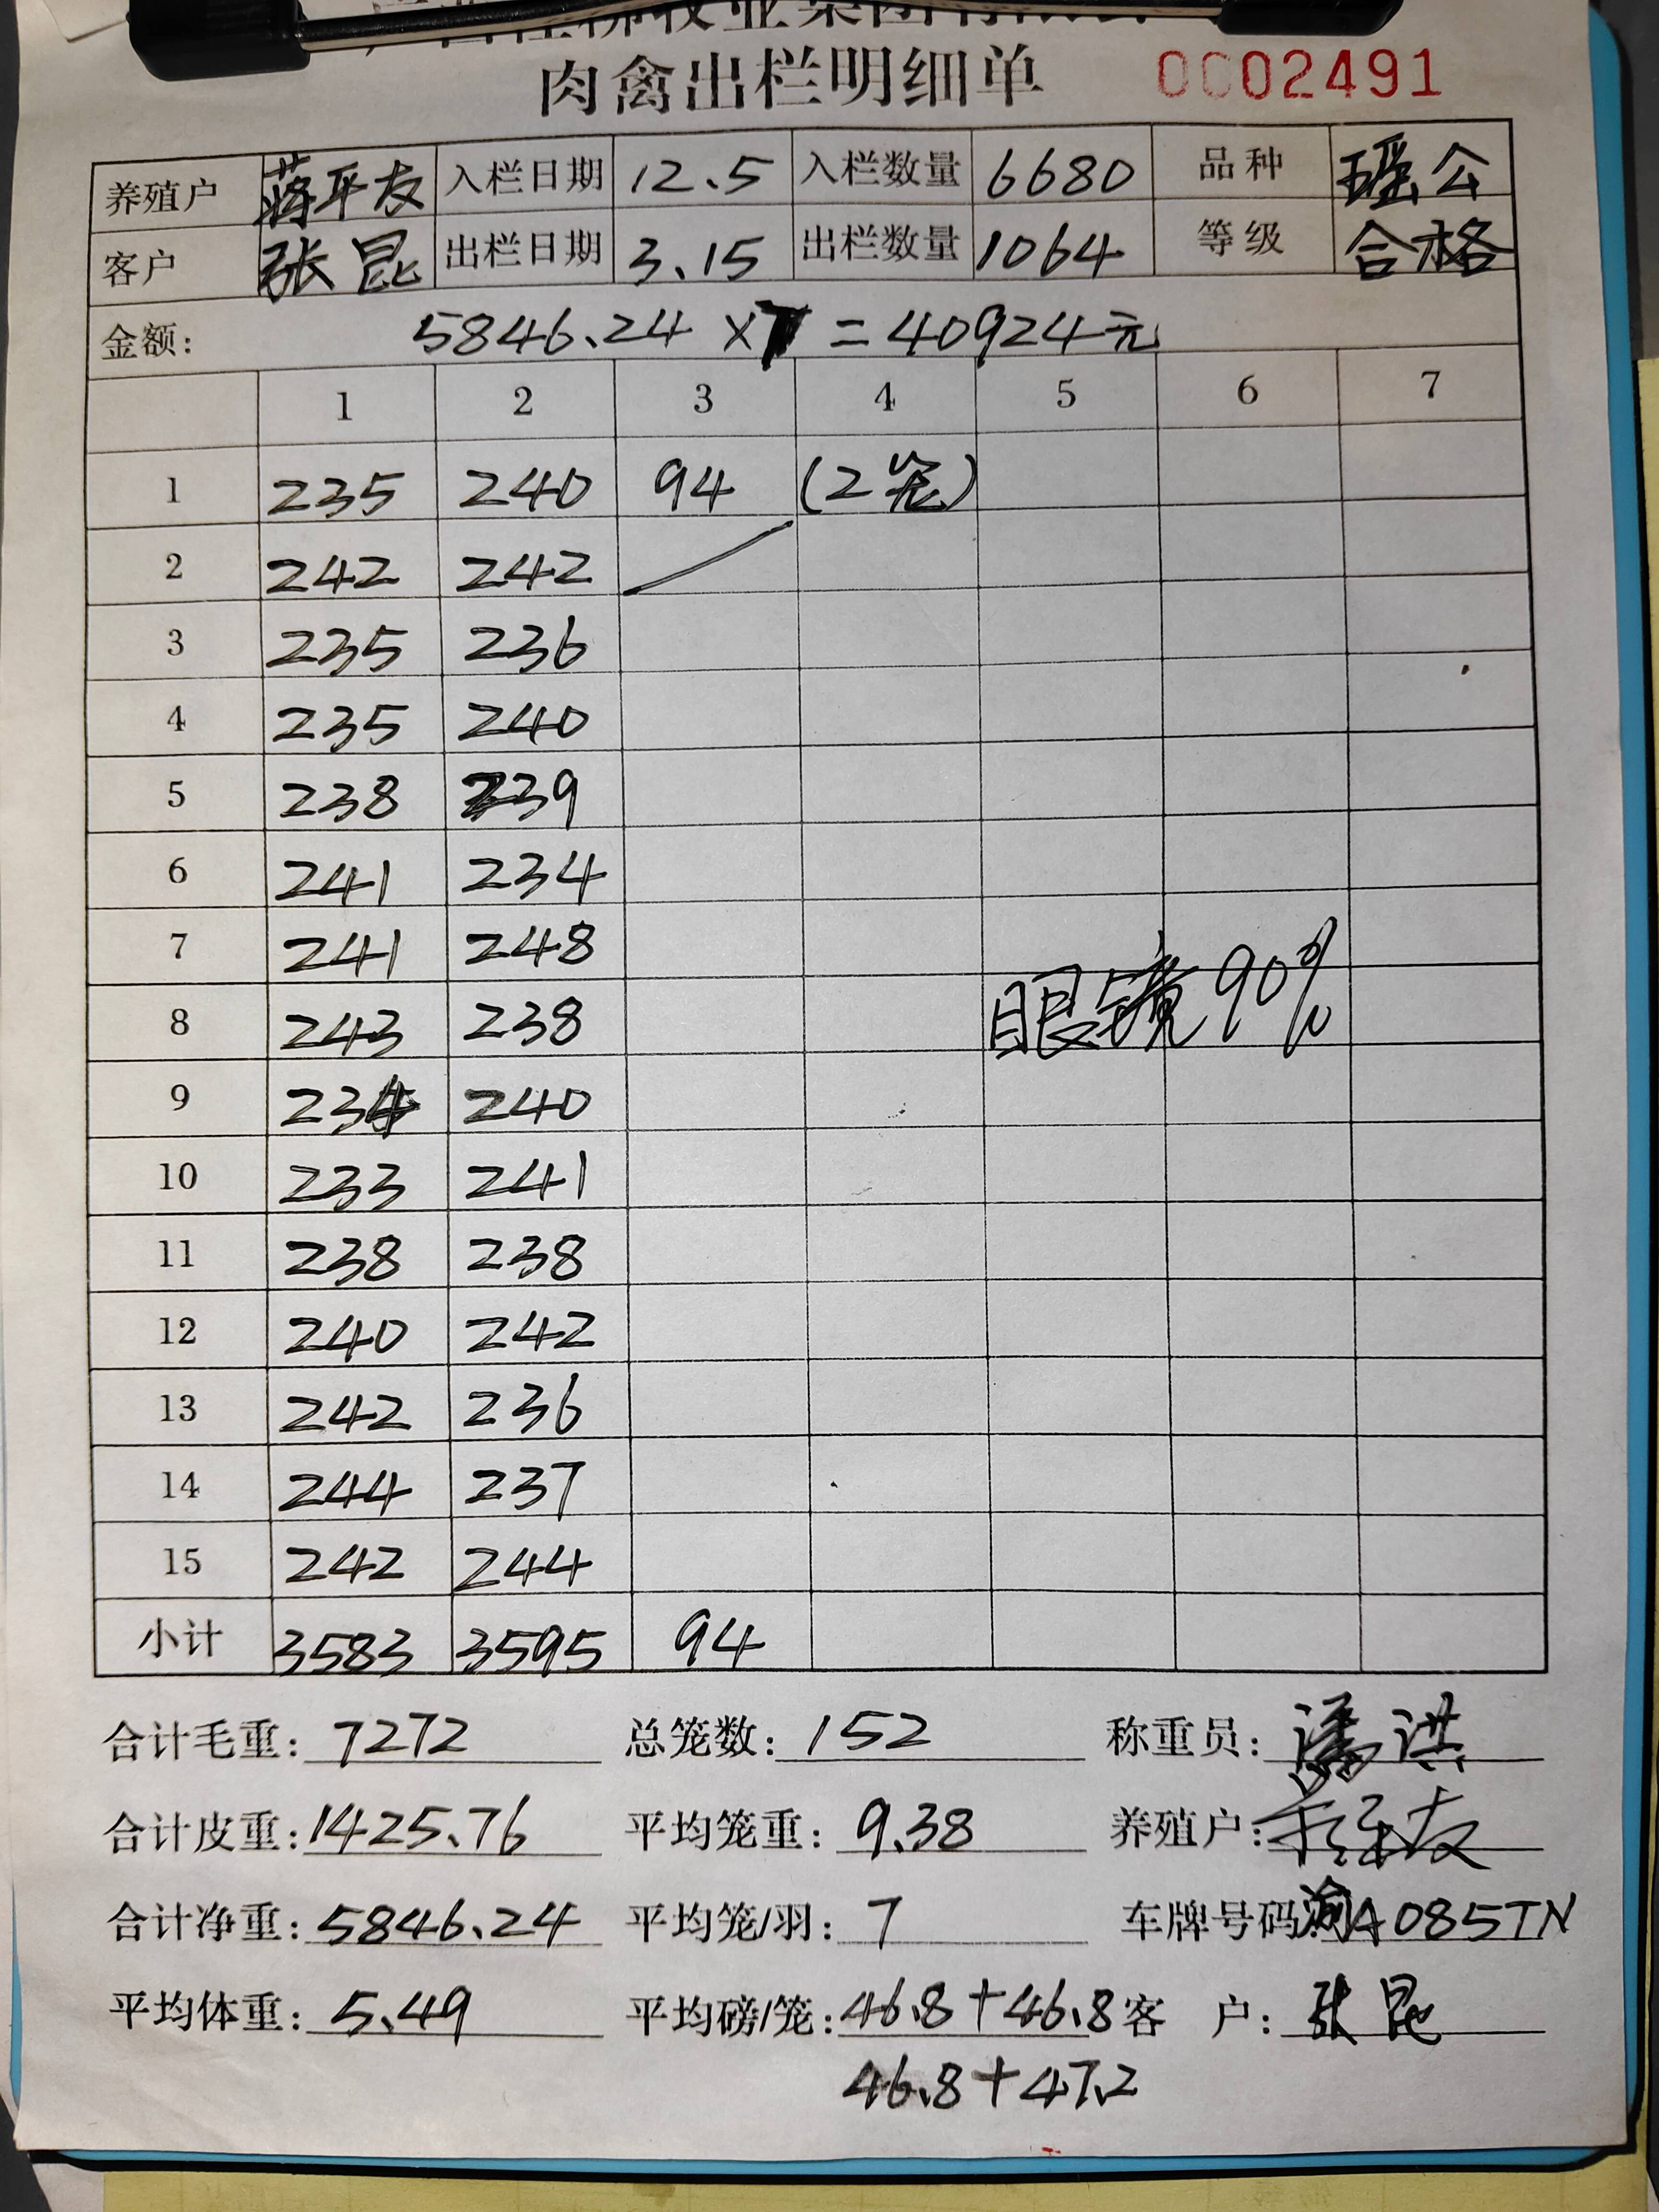 肉禽出栏明细单 0002491
养殖户 蒋平友 入栏日期 12.5 入栏数量 6680 品种 瑶公
客户 张昆 出栏日期 3.15 出栏数量 1064 等级 合格
金额: 5846.24 ×7 =40924元
1 2 3 4 5 6 7
1 235 240 94 (2笼)
2 242 242
3 235 236
4 235 240
5 238 239
6 241 234
7 241 248
8 243 238
眼镜90%
9 234 240
10 233 241
11 238 238
12 240 242
13 242 236
14 244 237
15 242 244
小计 3583 3595 94
合计毛重: 7272 总笼数: 152 称重员: 潘洪
合计皮重: 1425.76 平均笼重: 9.38 养殖户: 蒋平友
合计净重: 5846.24 平均笼/羽: 7 车牌号码: 渝A085TN
平均体重: 5.49 平均磅/笼: 46.8+46.8 客户: 张昆
46.8+47.2